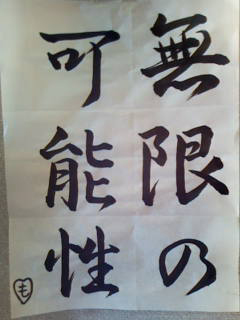 無限の
可能性